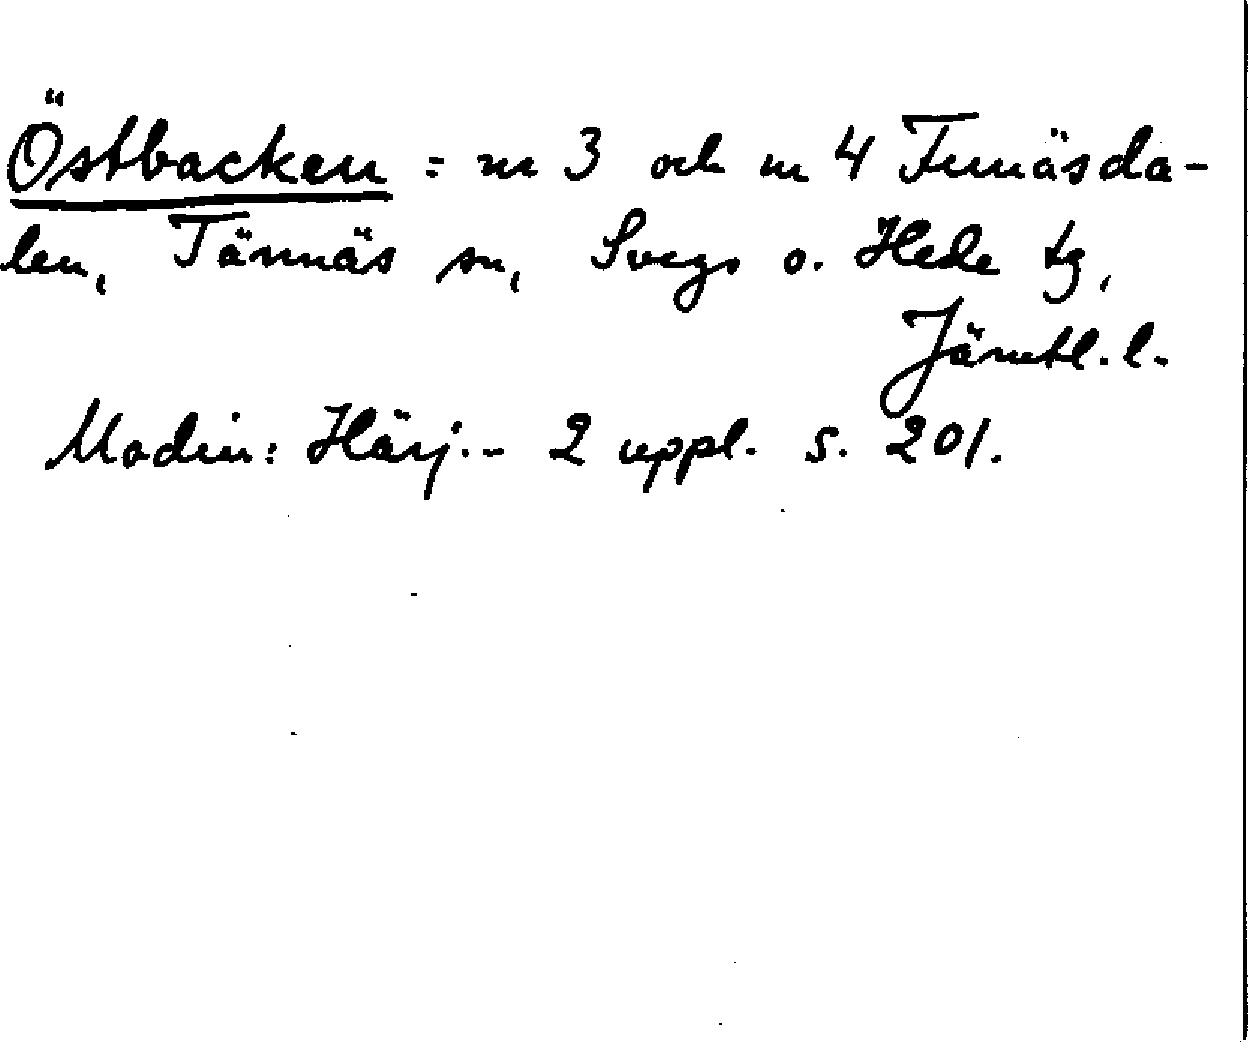 Östbacken = nr 3 och nr 4 Funäsda-
len, Tännäs sn, Svegs o. Hede tg,
Jämtl. l.
Modin: Härj. - 2 uppl. s. 201.